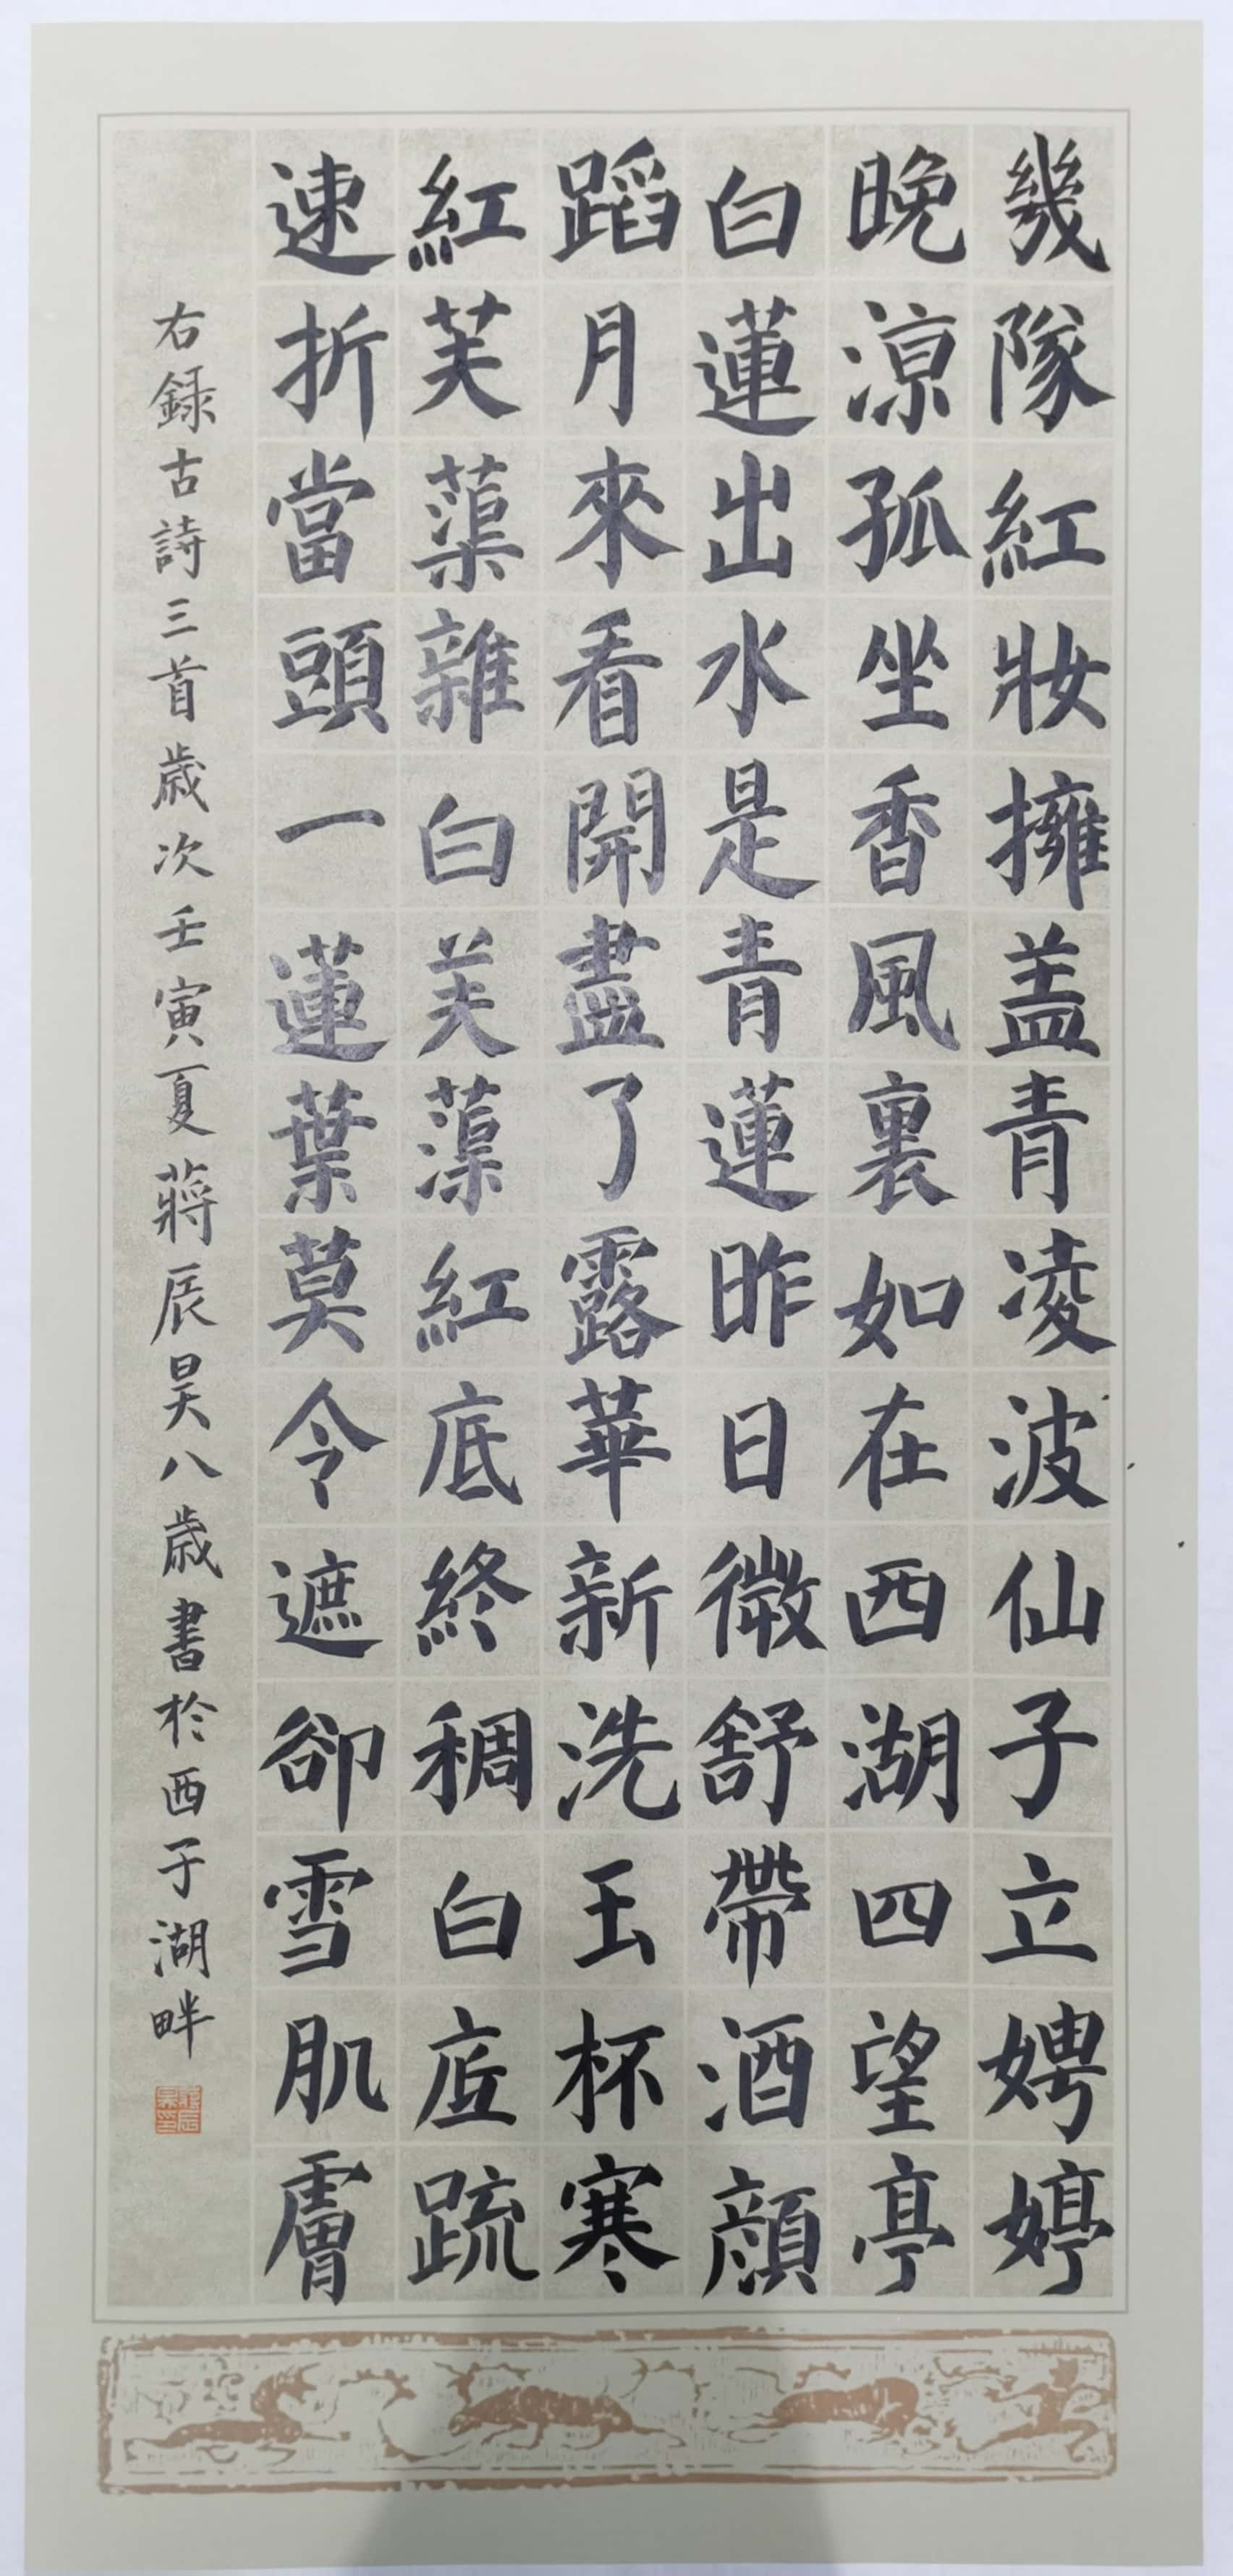 幾隊紅妝擁盖青凌波仙子立娉婷
晚涼孤坐香風裏如在西湖四望亭
白蓮出水是青蓮昨日微舒帶酒顏
蹈月來看開盡了露華新洗玉杯寒
紅芙蕖雜白芙蕖紅底終稠白底疏
速折當頭一蓮葉莫令遮卻雪肌膚
右録古詩三首歲次壬寅夏蔣辰昊八歲書於西子湖畔